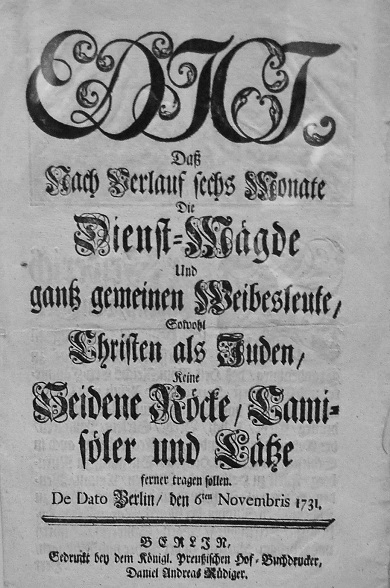 EDICT.
Daß
Nach Verlauf sechs Monate
Die
Dienst-Mägde
Und
gantz gemeinen Weibesleute/
Sowohl
Christen als Juden/
Keine
Seidene Röcke/ Cami-
söler und Lätze
ferner tragen sollen.
De Dato Berlin/ den 6ten Novembris 1731.
BERLIN,
Gedruckt bey dem Königl. Preußischen Hof-Buchdrucker,
Daniel Andreas Rüdiger.